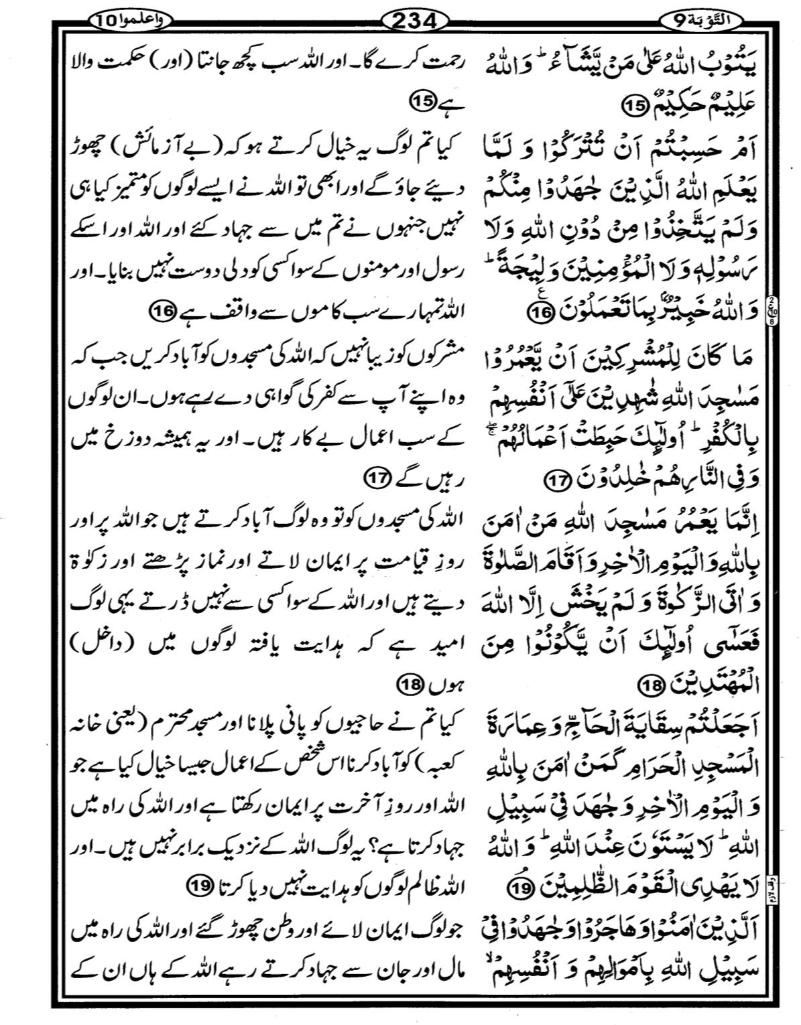 التَّوْبَة 9
234
واعلموا 10
يَتُوْبُ اللّٰهُ عَلٰى مَنْ يَّشَآءُ ؕ وَاللّٰهُ
عَلِيْمٌ حَكِيْمٌ 15
اَمْ حَسِبْتُمْ اَنْ تُتْرَكُوْا وَ لَمَّا
يَعْلَمِ اللّٰهُ الَّذِيْنَ جٰهَدُوْا مِنْكُمْ
وَلَمْ يَتَّخِذُوْا مِنْ دُوْنِ اللّٰهِ وَلَا
رَسُوْلِهٖ وَلَا الْمُؤْمِنِيْنَ وَلِيْجَةً ؕ
وَاللّٰهُ خَبِيْرٌۢ بِمَا تَعْمَلُوْنَ 16 ع
مَا كَانَ لِلْمُشْرِكِيْنَ اَنْ يَّعْمُرُوْا
مَسٰجِدَ اللّٰهِ شٰهِدِيْنَ عَلٰٓى اَنْفُسِهِمْ
بِالْكُفْرِ ؕ اُولٰٓئِكَ حَبِطَتْ اَعْمَالُهُمْ ۚۖ
وَفِى النَّارِ هُمْ خٰلِدُوْنَ 17
اِنَّمَا يَعْمُرُ مَسٰجِدَ اللّٰهِ مَنْ اٰمَنَ
بِاللّٰهِ وَالْيَوْمِ الْاٰخِرِ وَاَقَامَ الصَّلٰوةَ
وَ اٰتَى الزَّكٰوةَ وَ لَمْ يَخْشَ اِلَّا اللّٰهَ
فَعَسٰٓى اُولٰٓئِكَ اَنْ يَّكُوْنُوْا مِنَ
الْمُهْتَدِيْنَ 18
اَجَعَلْتُمْ سِقَايَةَ الْحَآجِّ وَعِمَارَةَ
الْمَسْجِدِ الْحَرَامِ كَمَنْ اٰمَنَ بِاللّٰهِ
وَ الْيَوْمِ الْاٰخِرِ وَجٰهَدَ فِىْ سَبِيْلِ
اللّٰهِ ؕ لَا يَسْتَوٗنَ عِنْدَ اللّٰهِ ؕ وَ اللّٰهُ
لَا يَهْدِى الْقَوْمَ الظّٰلِمِيْنَ ۘ 19
اَلَّذِيْنَ اٰمَنُوْا وَهَاجَرُوْا وَجٰهَدُوْا فِىْ
سَبِيْلِ اللّٰهِ بِاَمْوَالِهِمْ وَ اَنْفُسِهِمْ ۙ
رحمت کرے گا۔ اور اللہ سب کچھ جانتا (اور) حکمت والا
ہے 15
کیا تم لوگ یہ خیال کرتے ہو کہ (بے آزمائش) چھوڑ
دیئے جاؤ گے اور ابھی تو اللہ نے ایسے لوگوں کو متمیز کیا ہی
نہیں جنہوں نے تم میں سے جہاد کئے اور اللہ اور اسکے
رسول اور مومنوں کے سوا کسی کو دلی دوست نہیں بنایا۔ اور
اللہ تمہارے سب کاموں سے واقف ہے 16
مشرکوں کو زیبا نہیں کہ اللہ کی مسجدوں کو آباد کریں جب کہ
وہ اپنے آپ سے کفر کی گواہی دے رہے ہوں۔ ان لوگوں
کے سب اعمال بے کار ہیں۔ اور یہ ہمیشہ دوزخ میں
رہیں گے 17
اللہ کی مسجدوں کو تو وہ لوگ آباد کرتے ہیں جو اللہ پر اور
روزِ قیامت پر ایمان لاتے اور نماز پڑھتے اور زکوٰۃ
دیتے ہیں اور اللہ کے سوا کسی سے نہیں ڈرتے یہی لوگ
امید ہے کہ ہدایت یافتہ لوگوں میں (داخل)
ہوں 18
کیا تم نے حاجیوں کو پانی پلانا اور مسجد محترم (یعنی خانہ
کعبہ) کو آباد کرنا اس شخص کے اعمال جیسا خیال کیا ہے جو
اللہ اور روزِ آخرت پر ایمان رکھتا ہے اور اللہ کی راہ میں
جہاد کرتا ہے؟ یہ لوگ اللہ کے نزدیک برابر نہیں ہیں۔ اور
اللہ ظالم لوگوں کو ہدایت نہیں دیا کرتا 19
جو لوگ ایمان لائے اور وطن چھوڑ گئے اور اللہ کی راہ میں
مال اور جان سے جہاد کرتے رہے اللہ کے ہاں ان کے
وقف لازم